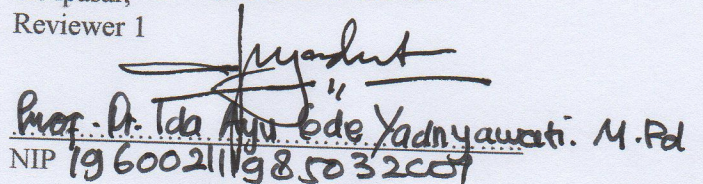 Reviewer 1
Prof. Dr. Ida Ayu Gde Yadnyawati. M.Pd
NIP 196002111985032001